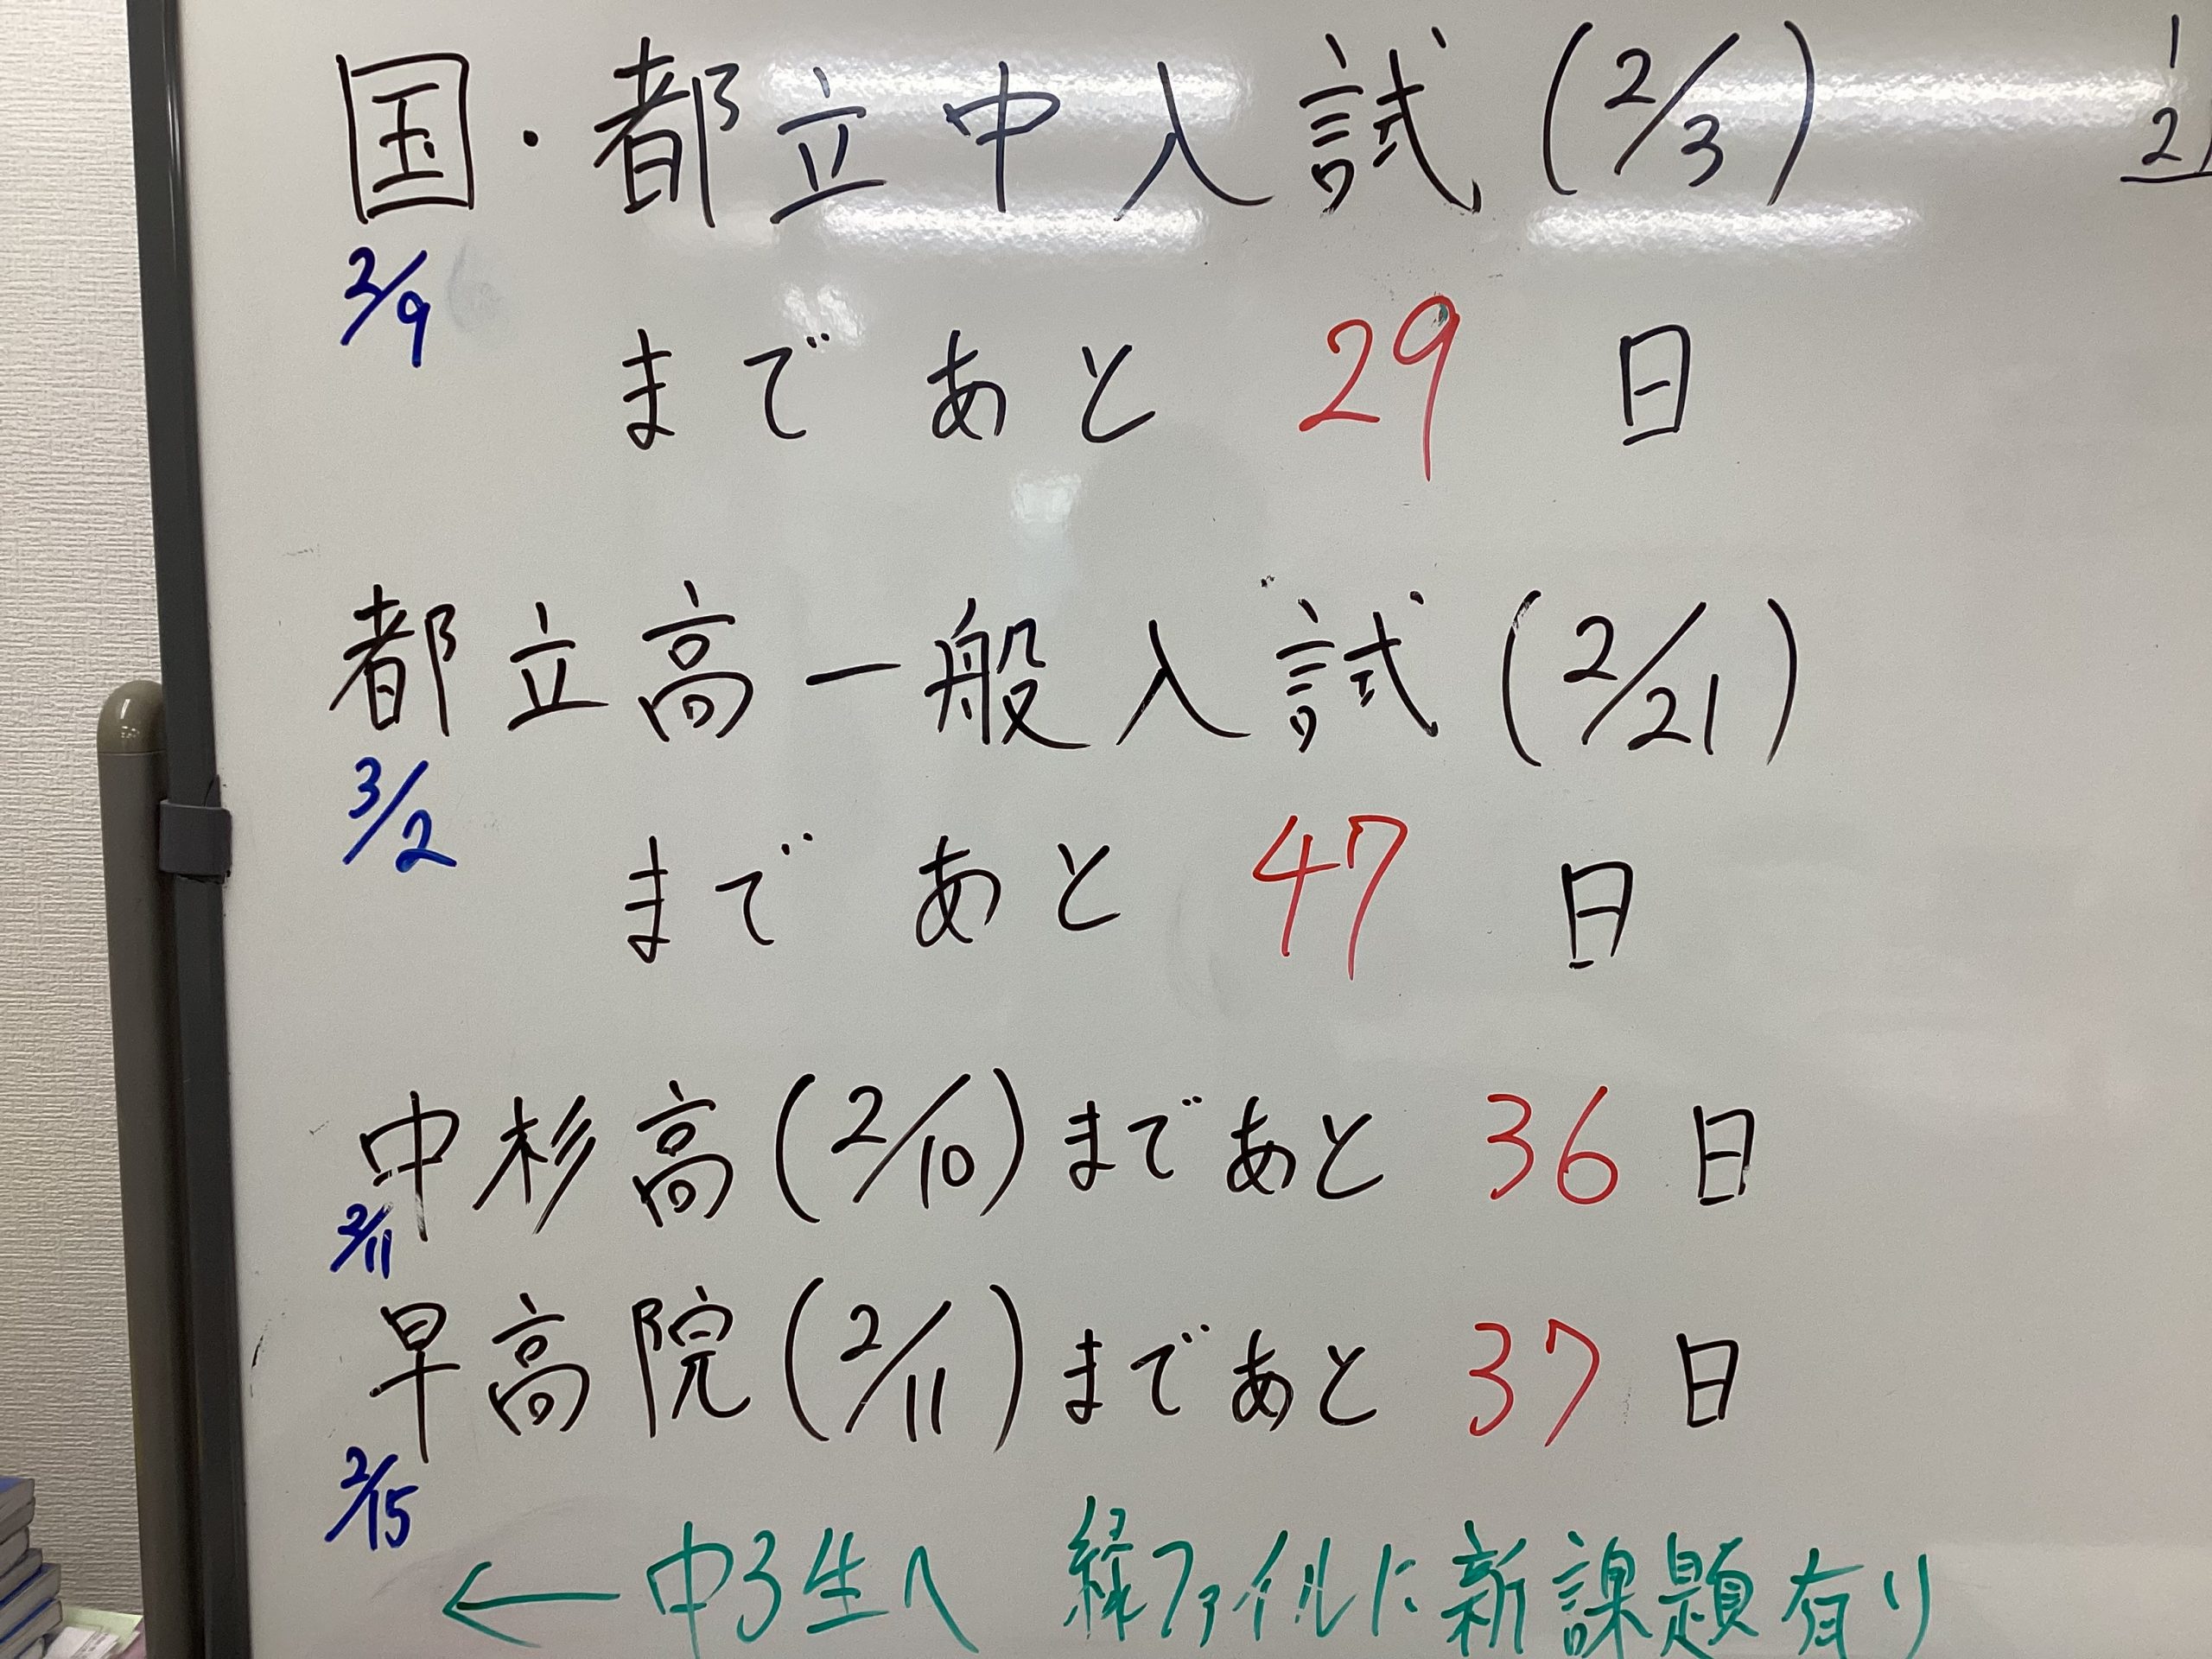 国・都立中入試(2/3)
2/9
まであと 29 日
都立高一般入試(2/21)
3/2
まであと 47 日
中杉高(2/10)まであと 36 日
2/11
早高院(2/11)まであと 37 日
2/15
←中3生へ 緑ファイルに新課題有り
1
2